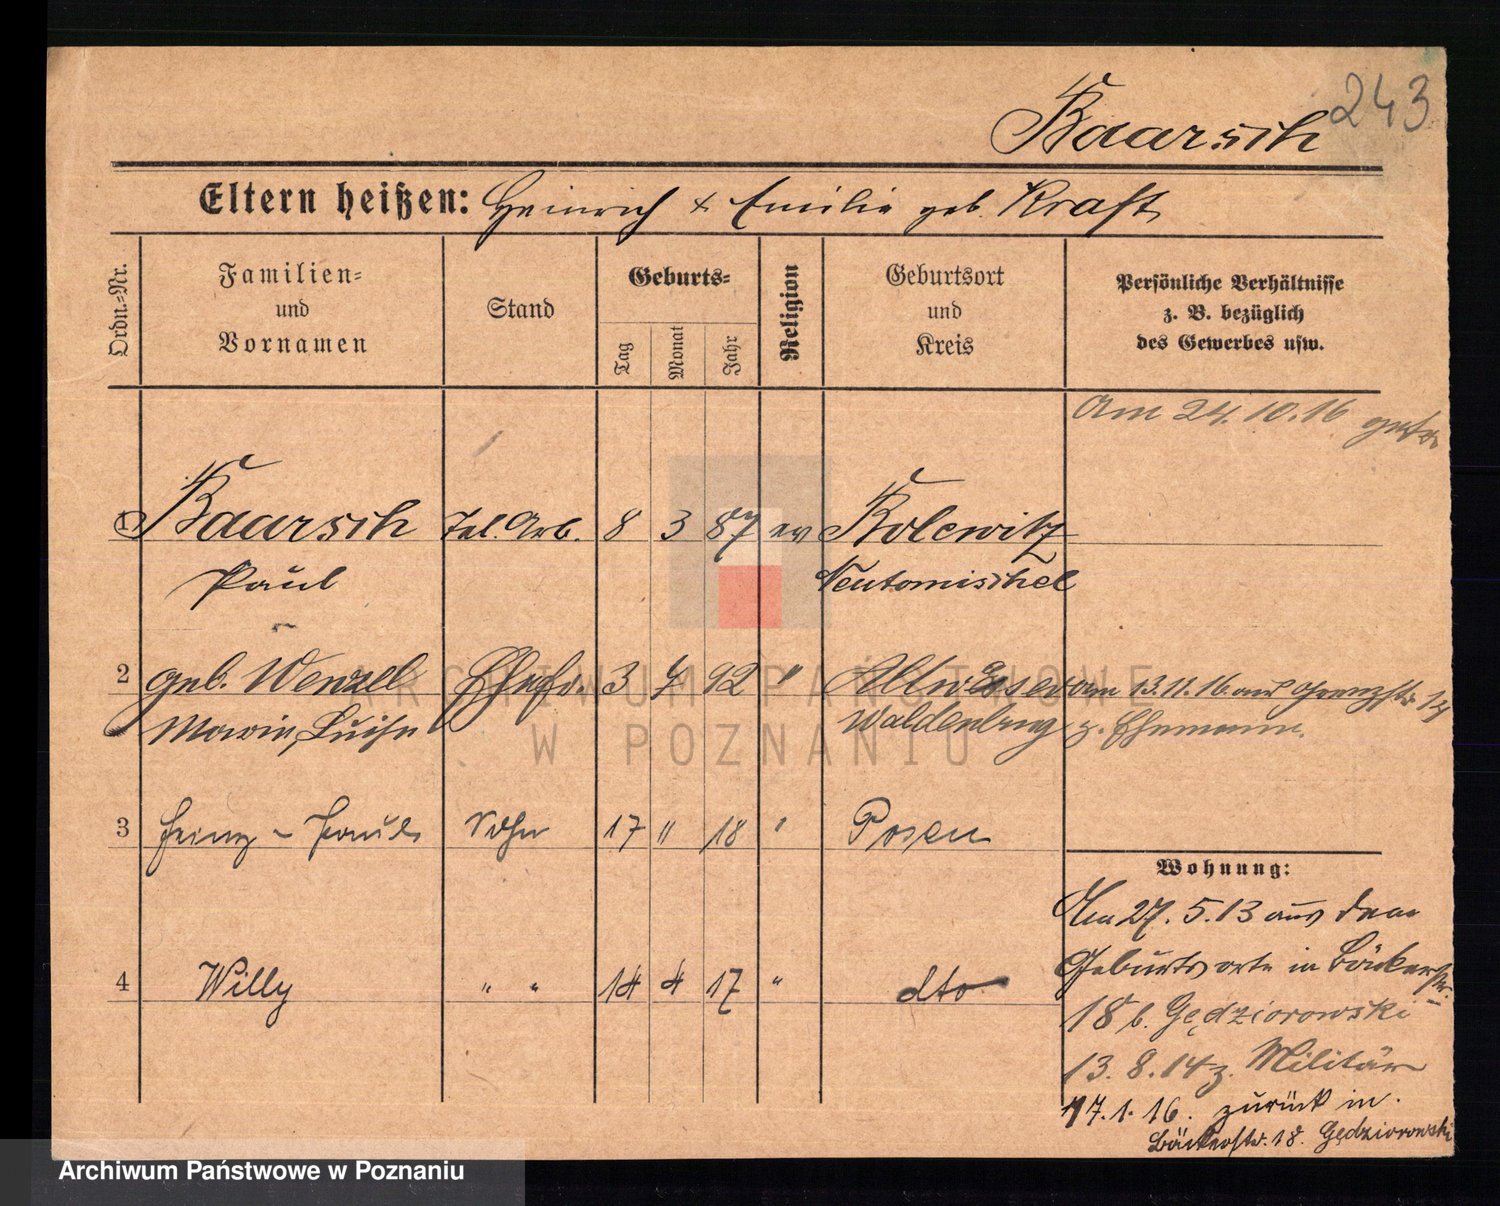 243
Baarsch
Eltern heißen: Heinrich & Emilie geb. Kraft
Ordn.=Nr.
Familien=
und
Vornamen
Stand
Geburts=
Tag
Monat
Jahr
Religion
Geburtsort
und
Kreis
Persönliche Verhältnisse
z. B. bezüglich
des Gewerbes usw.
Am 24.10.16 getr.
1 Baarsch Tel. Arb. 8 3 87 ev Bolewitz
Paul Neutomischel
2 geb. Wenzel Ehefr. 3 4 92 " Altwasser am 13.11.16 aus Grenzstr. 14
Marie, Luise Waldenburg z. Ehemann.
3 Heinz - Paul Sohn 17 " 18 " Posen
Wohnung:
Am 27.5.13 aus dem
Geburtsorte in Bäckerstr.
4 Willy " " 14 4 17 " dto
18 b. Gędziorowski
13.8.14 z. Militär
17.1.16. zurück in.
Bäckerstr. 18. Gędziorowski
ARCHIWUM PAŃSTWOWE
W POZNANIU
Archiwum Państwowe w Poznaniu